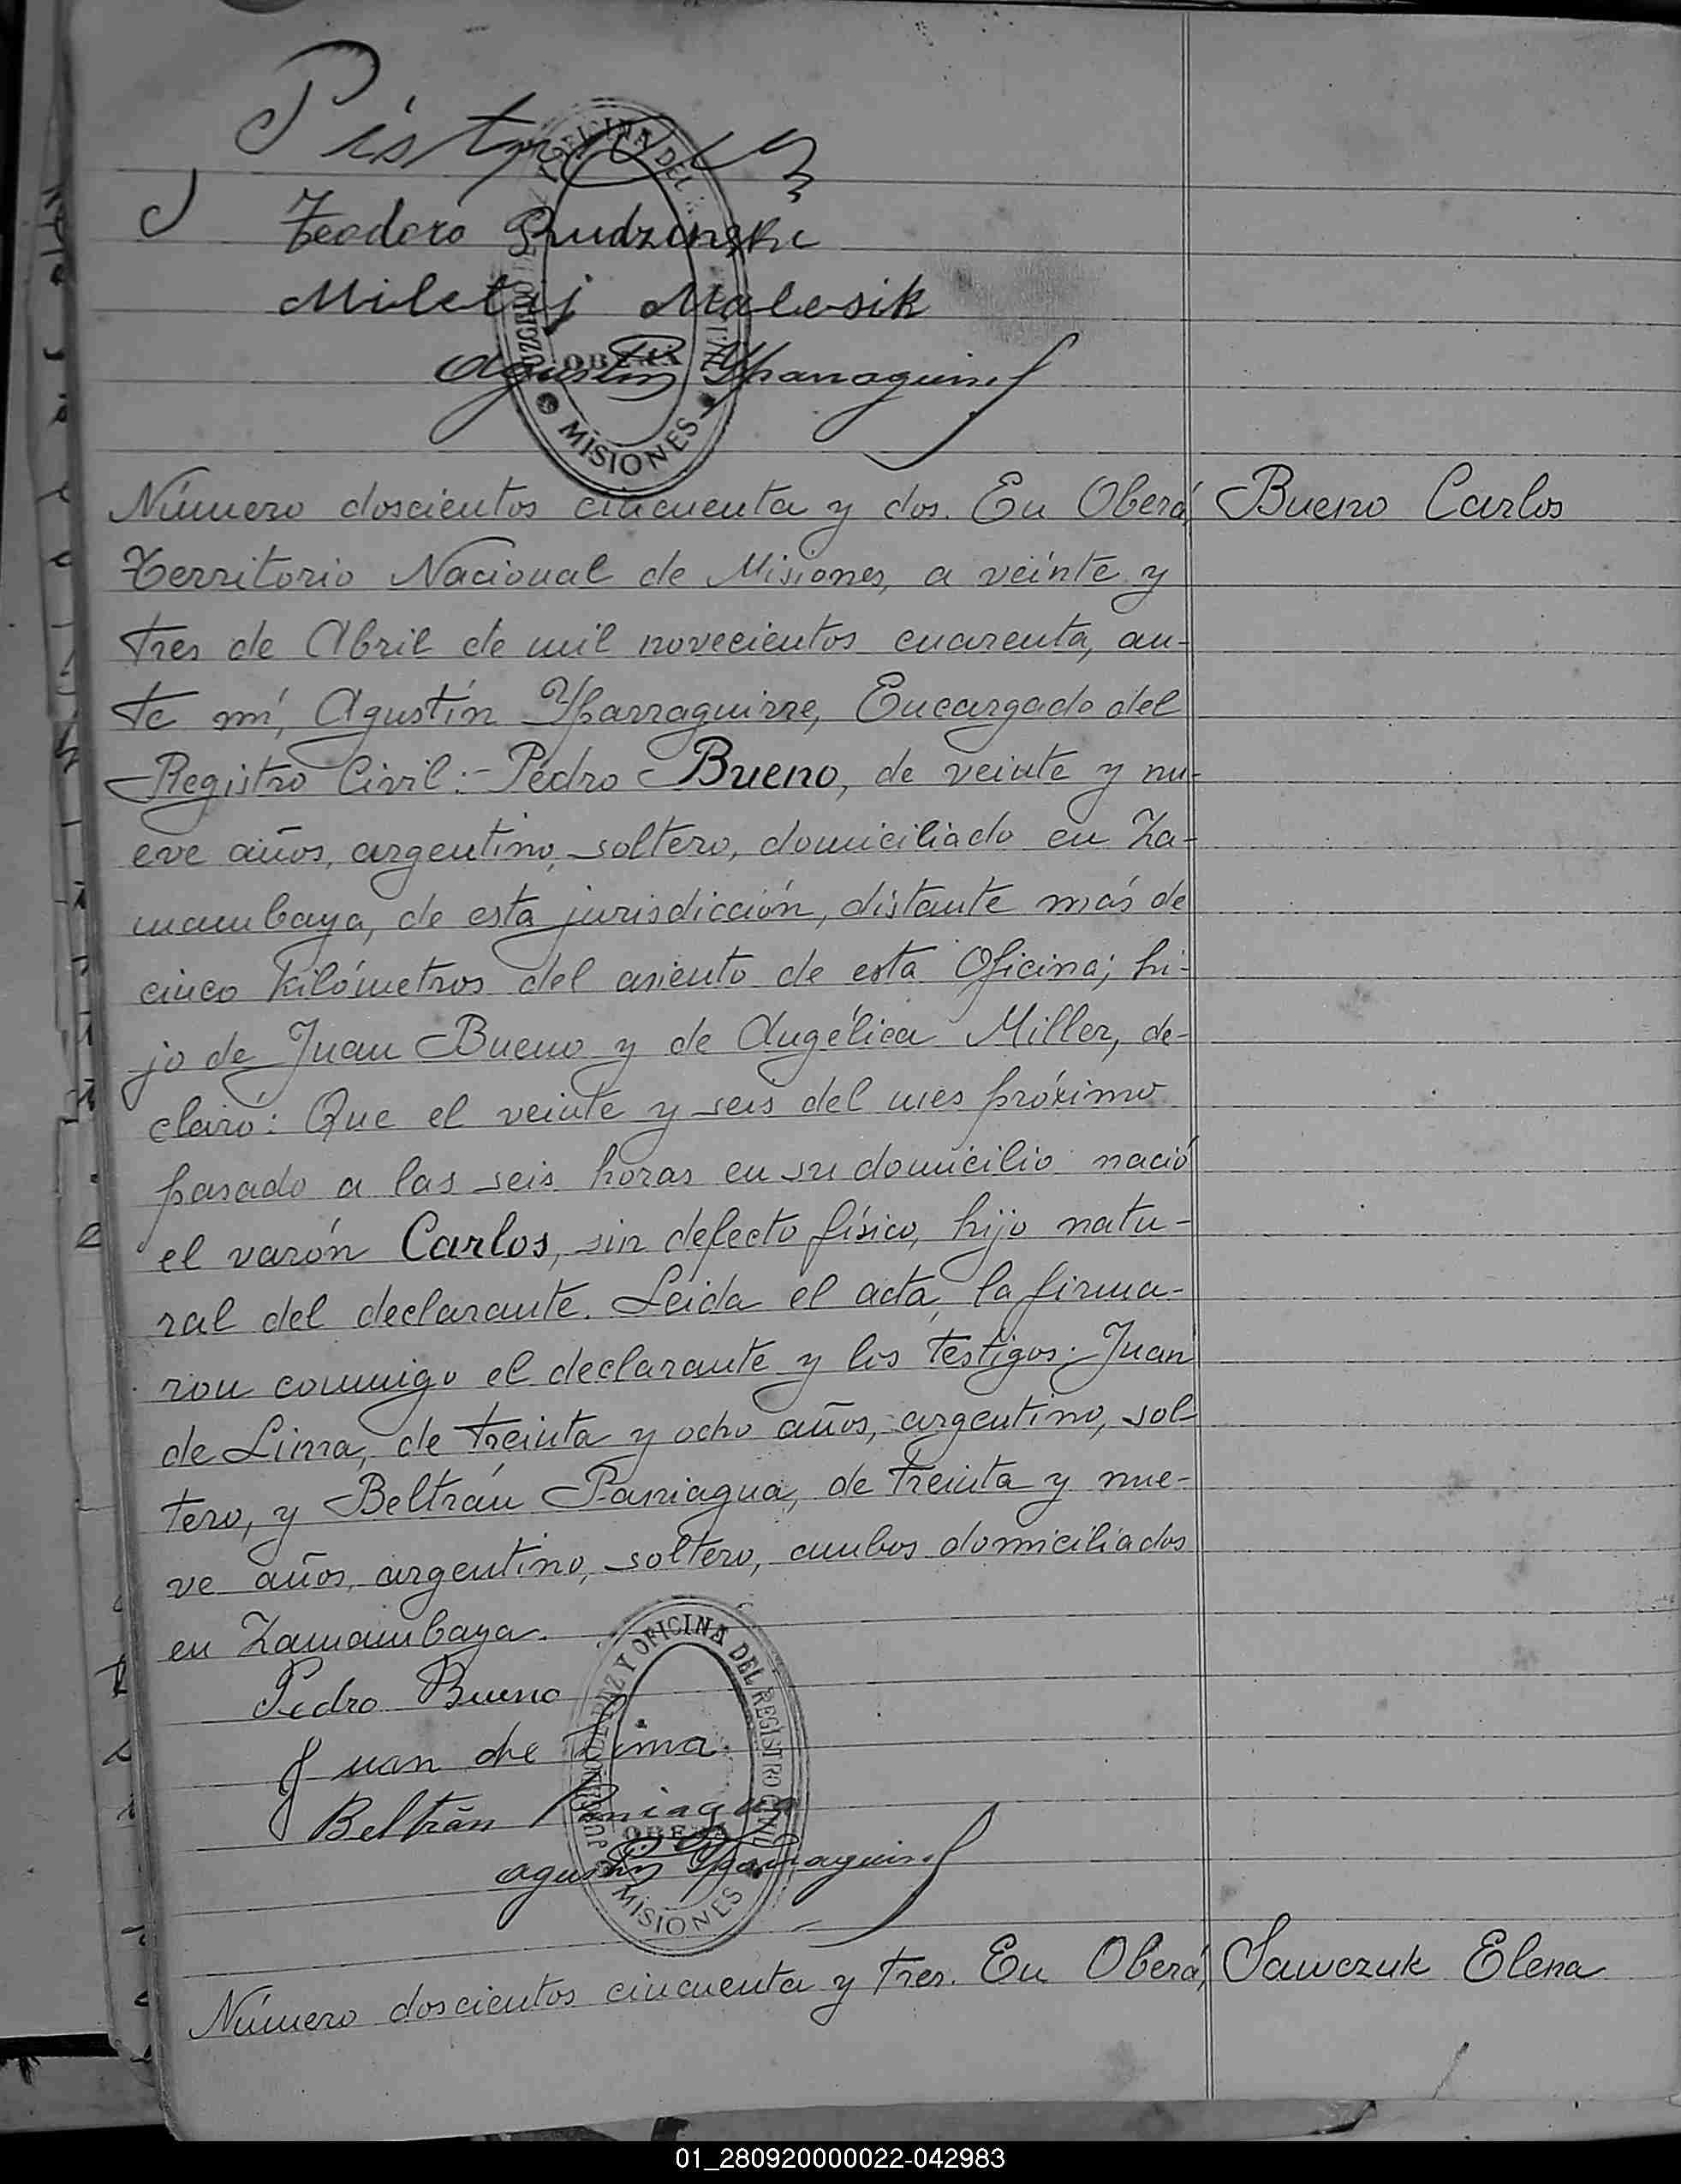 Teodoro Rudzinski
Miletij Malesik
Agustín Yparraguirre
JUZGADO DE PAZ Y OFICINA DEL REGISTRO CIVIL
OBERA
MISIONES
Número doscientos cincuenta y dos. En Oberá, Bueno Carlos
Territorio Nacional de Misiones, a veinte y
tres de Abril de mil novecientos cuarenta, an-
te mí, Agustín Yparraguirre, Encargado del
Registro Civil:- Pedro Bueno, de veinte y nu-
eve años, argentino, soltero, domiciliado en Za-
mambaya, de esta jurisdicción, distante más de
cinco kilómetros del asiento de esta Oficina; hi-
jo de Juan Bueno y de Angélica Miller, de-
claró: Que el veinte y seis del mes próximo
pasado a las seis horas en su domicilio nació
el varón Carlos, sin defecto físico, hijo natu-
ral del declarante. Leida el acta, la firma-
ron conmigo el declarante y los testigos: Juan
de Lima, de treinta y ocho años, argentino, sol-
tero, y Beltrán Paniagua, de treinta y nue-
ve años, argentino, soltero, ambos domiciliados
en Zamambaya.
Pedro Bueno
Juan de Lima
Beltrán Paniagua
Agustín Yparraguirre
JUZGADO DE PAZ Y OFICINA DEL REGISTRO CIVIL
OBERA
MISIONES
Número doscientos cincuenta y tres. En Oberá, Sawczuk Elena
01_280920000022-042983